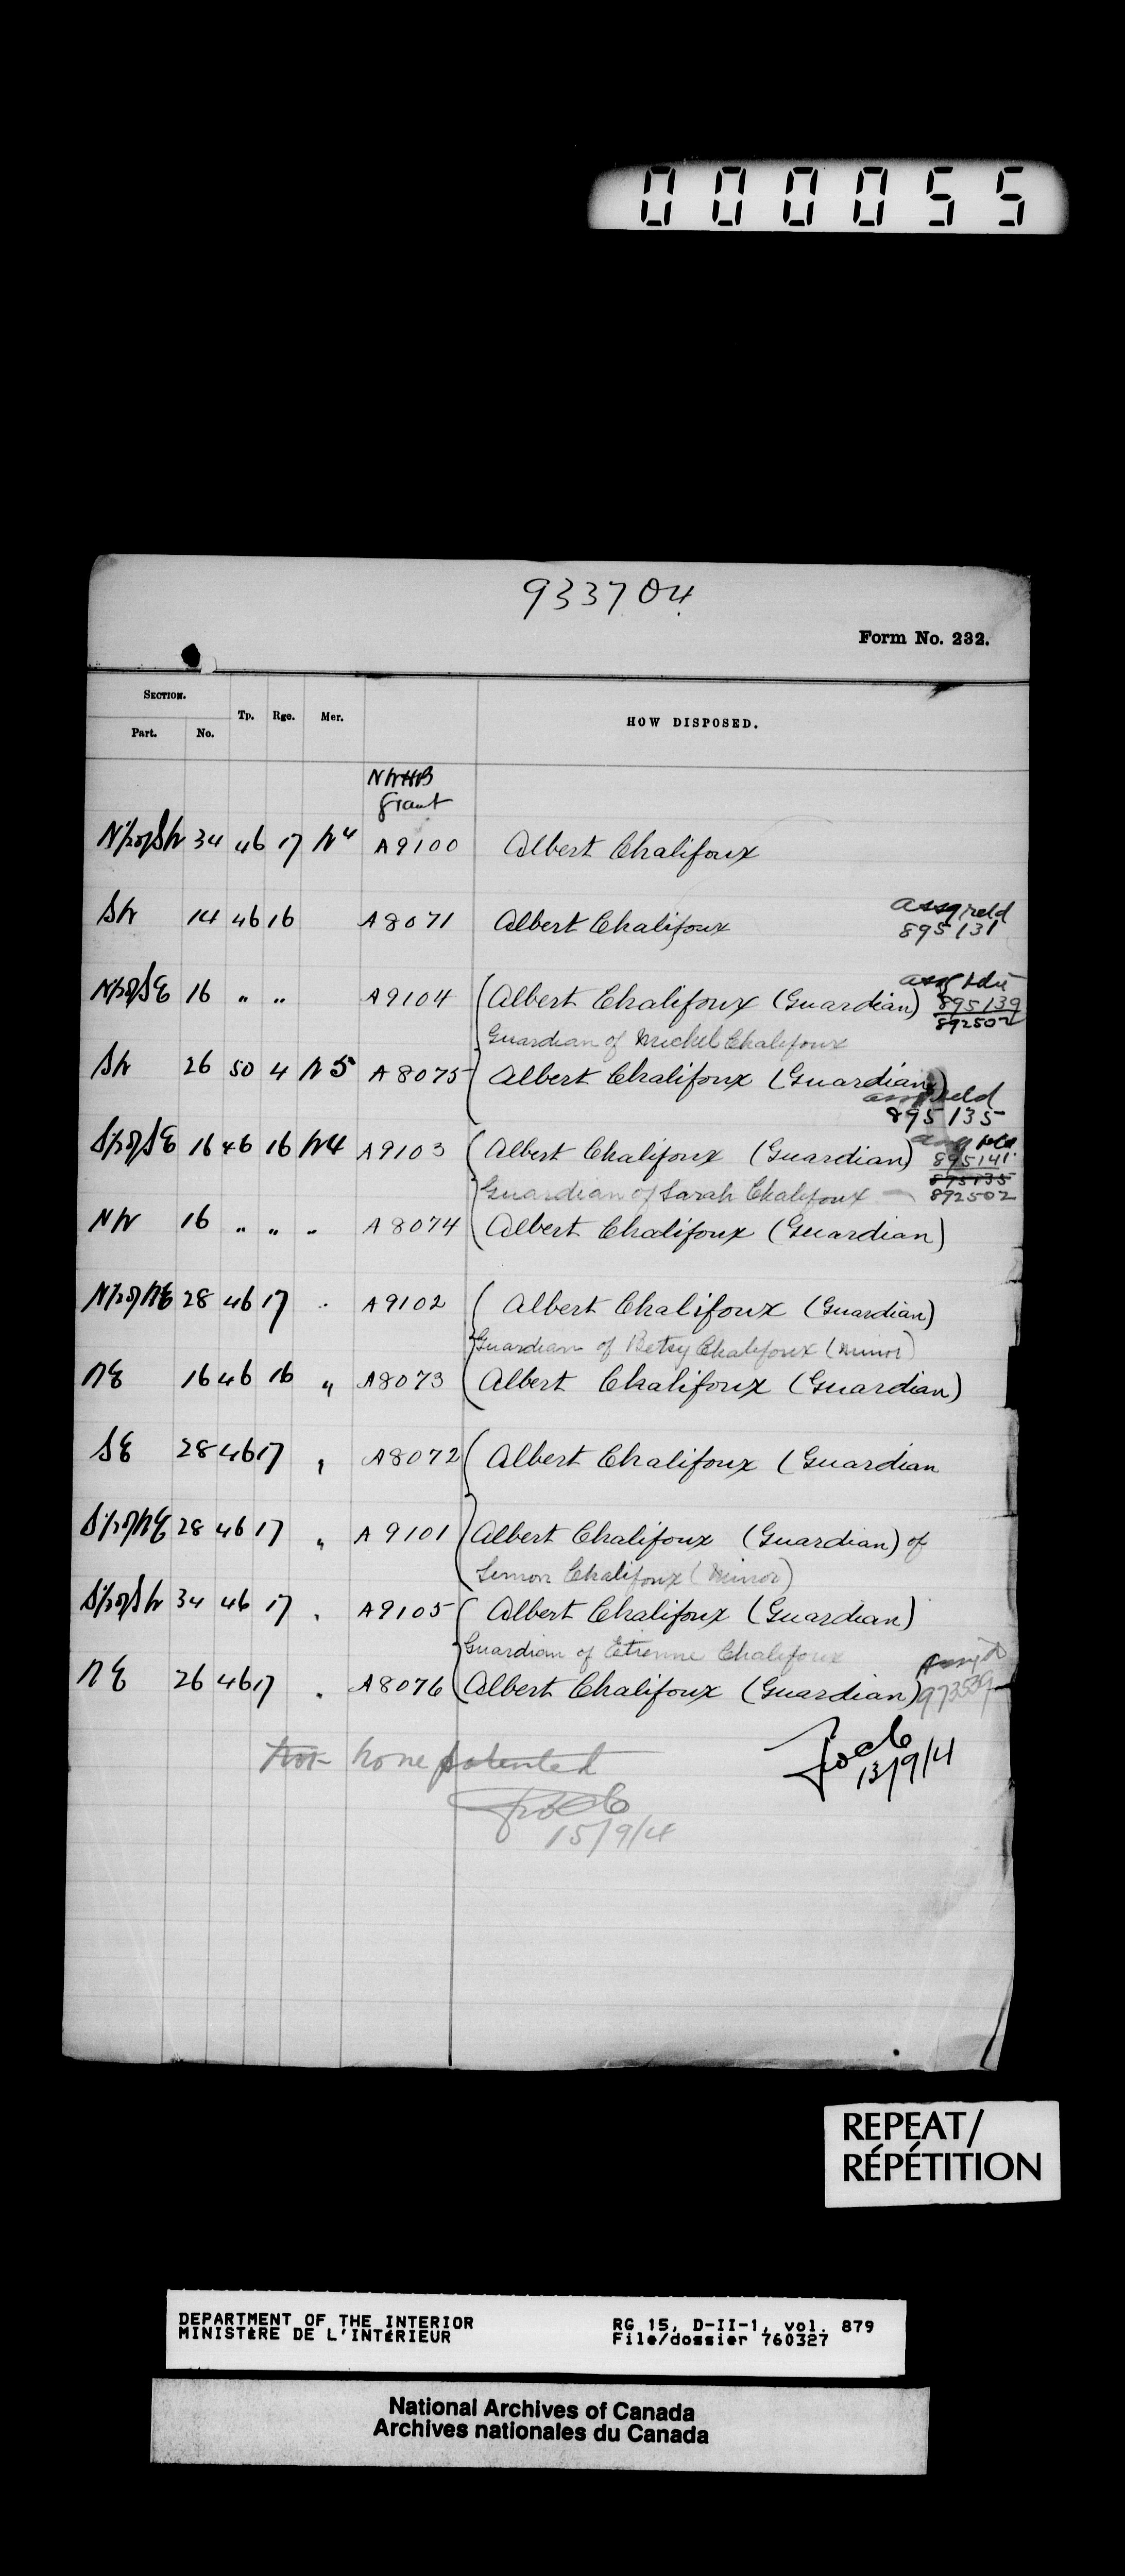 000055
933704
Form No. 232.
SECTION. Tp. Rge. Mer. HOW DISPOSED.
Part. No.
NWHB
Grant
N½ of SW 34 46 17 W4 A9100 Albert Chalifoux
SW 14 46 16 A8071 Albert Chalifoux assg reld
895131
N½ of SE 16 " " A9104 (Albert Chalifoux (Guardian) assg
895139
892502
Guardian of Michel Chalifoux
SW 26 50 4 W5 A8075 Albert Chalifoux (Guardian)
assg reld
895135
S½ of SE 16 46 16 W4 A9103 (Albert Chalifoux (Guardian) assg reld
895141
895135
Guardian of Sarah Chalifoux — 892502
NW 16 " " " A8074 (Albert Chalifoux (Guardian)
N½ of NE 28 46 17 " A9102 (Albert Chalifoux (Guardian)
Guardian of Betsy Chalifoux (Minor)
NE 16 46 16 " A8073 (Albert Chalifoux (Guardian)
SE 28 46 17 " A8072 (Albert Chalifoux (Guardian
S½ of NE 28 46 17 " A9101 (Albert Chalifoux (Guardian) of
Simon Chalifoux (Minor)
S½ of SW 34 46 17 " A9105 (Albert Chalifoux (Guardian)
Guardian of Etienne Chalifoux
NE 26 46 17 " A8076 (Albert Chalifoux (Guardian) 973539
13/9/4
None patented
15/9/4
REPEAT/
RÉPÉTITION
DEPARTMENT OF THE INTERIOR RG 15, D-II-1, vol. 879
MINISTÈRE DE L'INTÉRIEUR File/dossier 760327
National Archives of Canada
Archives nationales du Canada